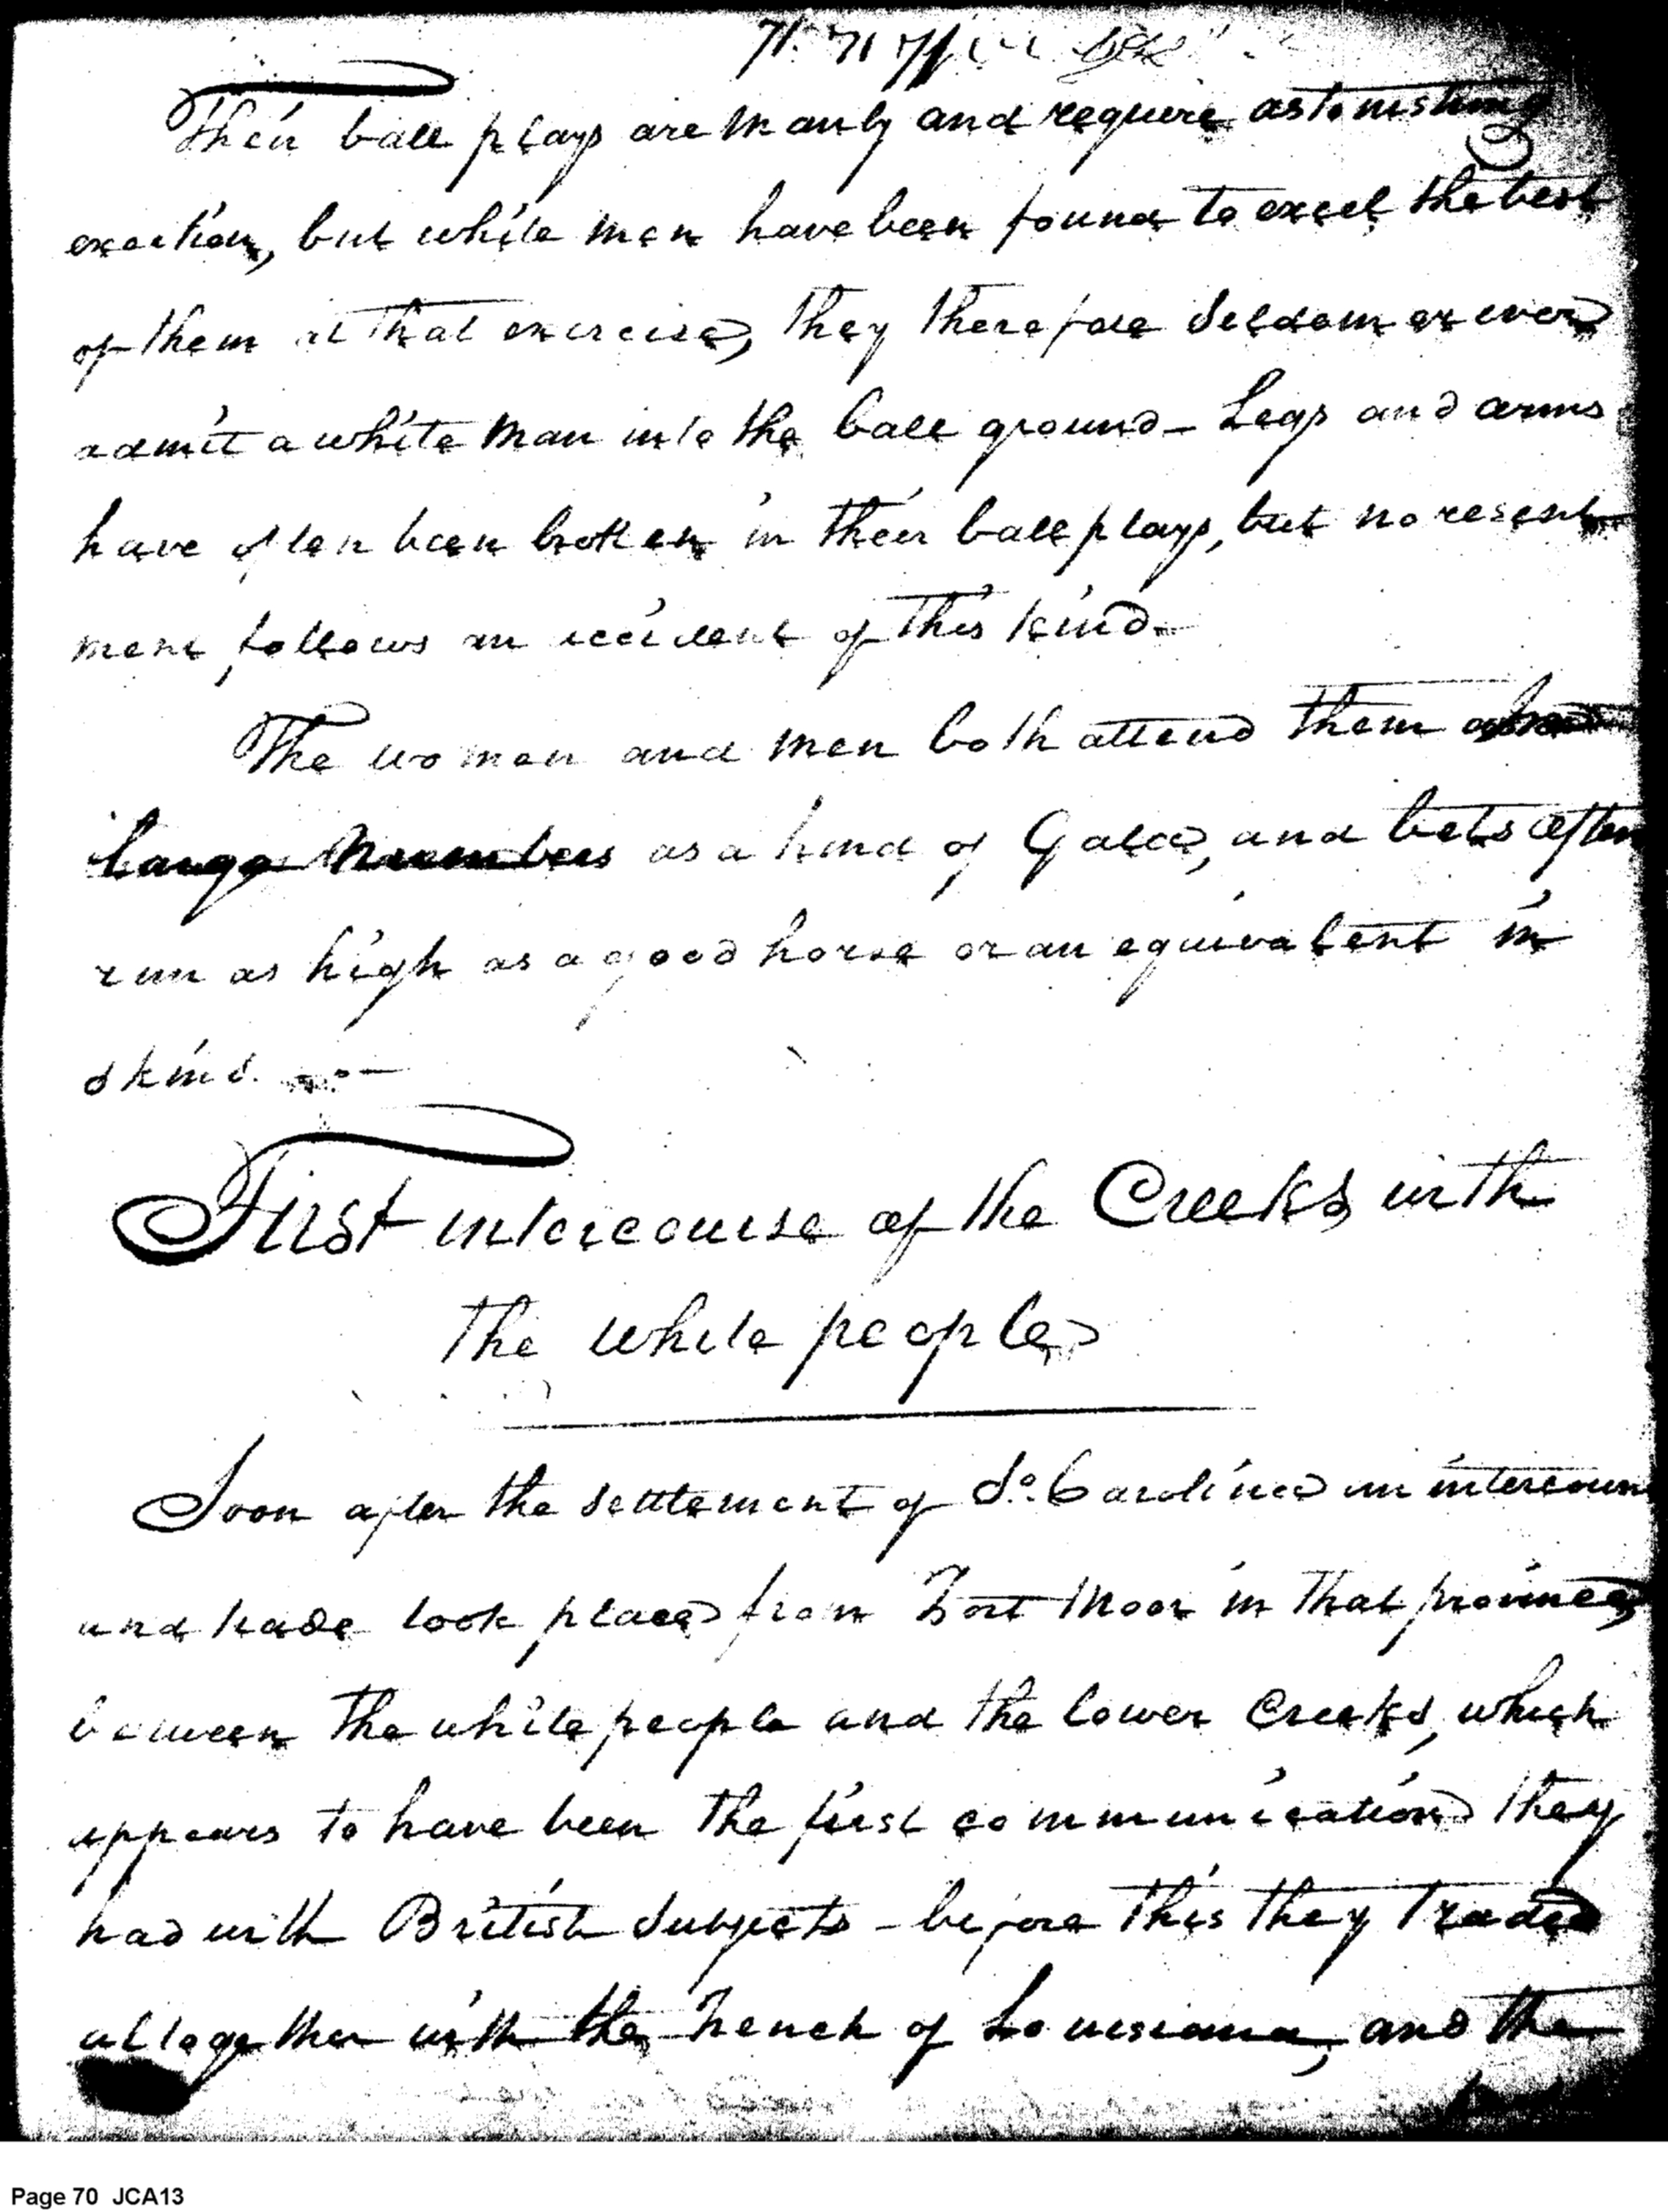 71. 71 71
Their ball plays are manly and require astonishing
exertion, but white men have been found to excel the best
of them at that exercise, they therefore seldom or ever
admit a white man into the ball ground – Legs and arms
have often been broken in their ball plays, but no resent
ment follows an accident of this kind –
The women and men both attend them
large numbers as a kind of Gala, and bets often
run as high as a good horse or an equivalent in
skins. –
First intercourse of the Creeks with
the white people
Soon after the settlement of So. Carolina an intercourse
and trade took place from Fort Moor in that province
between the white people and the lower Creeks, which
appears to have been the first communication they
had with British Subjects – before this they traded
altogether with the French of Louisiana, and the
Page 70 JCA13